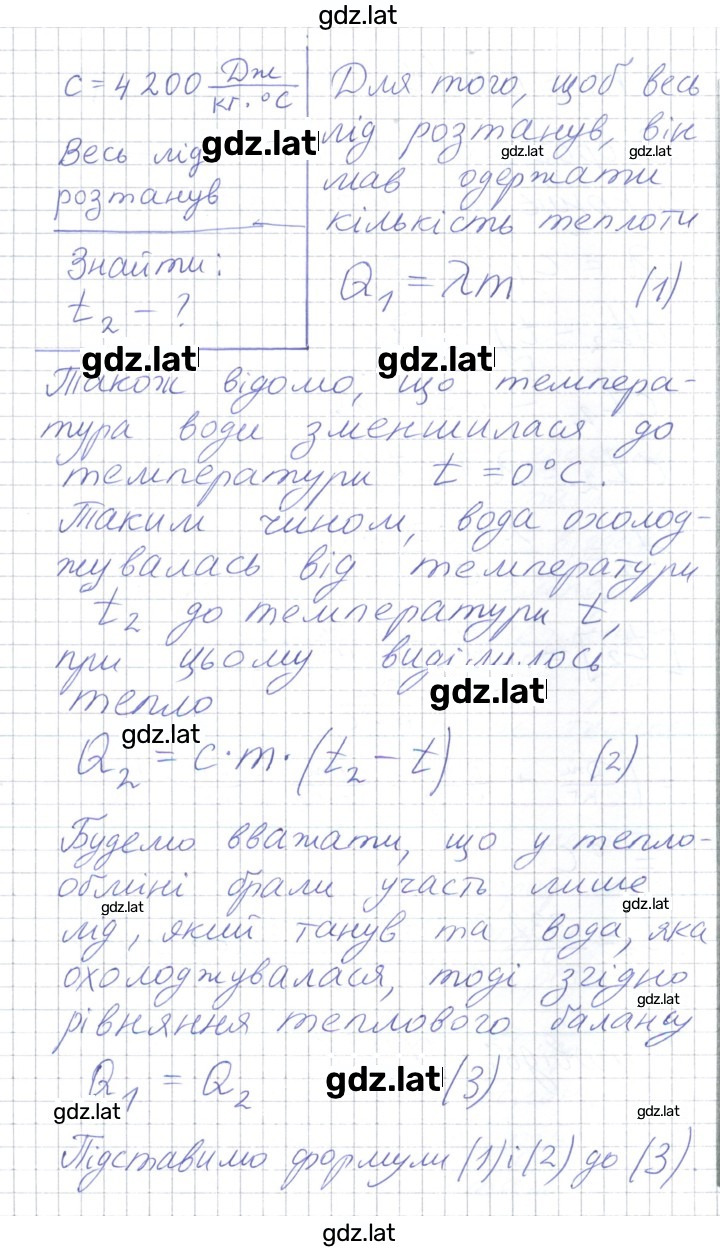 gdz.lat
c = 4200 Дж/(кг·°C)
Весь лід
розтанув
Знайти:
t₂ - ?
gdz.lat
Для того, щоб весь
лід розтанув, він
gdz.lat gdz.lat
мав одержати
кількість теплоти
Q₁ = λm (1)
gdz.lat gdz.lat
Також відомо, що темпера-
тура води зменшилася до
температури t = 0°C.
Таким чином, вода охолод-
жувалась від температури
t₂ до температури t,
при цьому виділилось
gdz.lat
тепло
gdz.lat
Q₂ = c·m·(t₂ - t) (2)
Будемо вважати, що у тепло-
обміні брали участь лише
gdz.lat gdz.lat
лід, який танув та вода, яка
охолоджувалася, тоді згідно
gdz.lat
рівняння теплового балансу
Q₁ = Q₂ gdz.lat (3)
gdz.lat gdz.lat
Підставимо формули (1) і (2) до (3).
gdz.lat